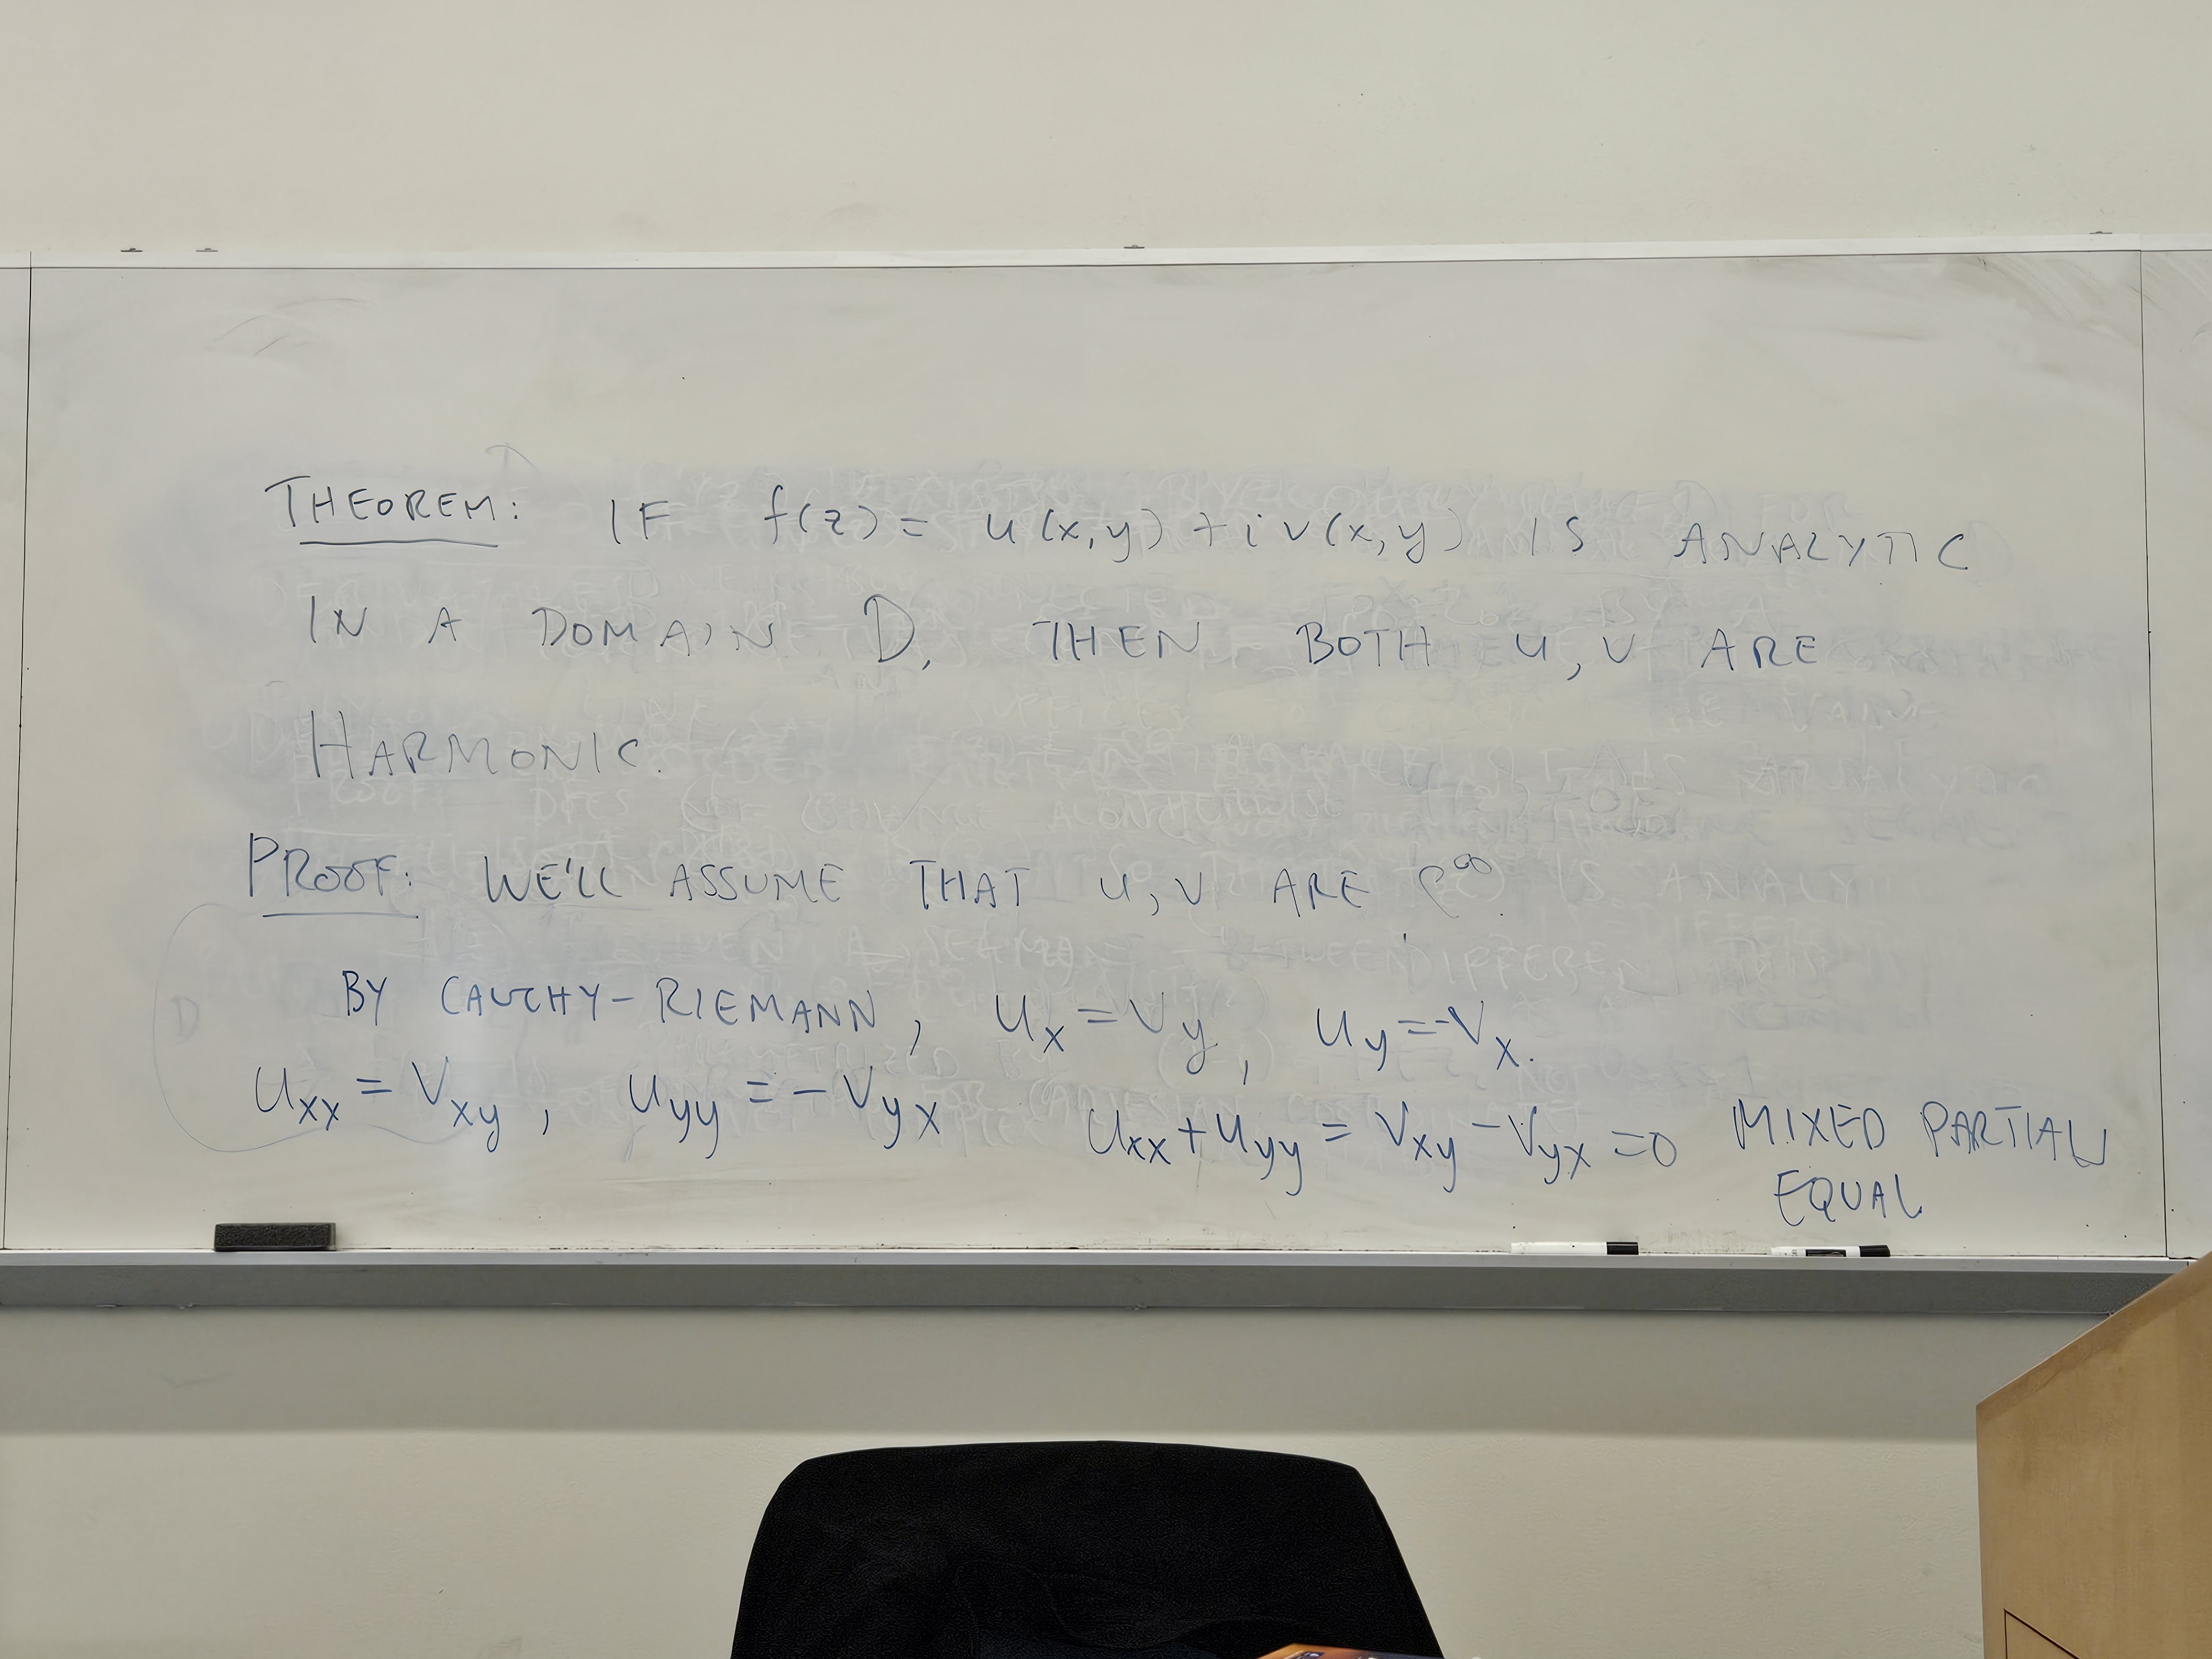 THEOREM: IF f(z) = u(x,y) + i v(x,y) IS ANALYTIC
IN A DOMAIN D, THEN BOTH u, v ARE
HARMONIC.
PROOF: WE'LL ASSUME THAT u, v ARE C^∞.
BY CAUCHY-RIEMANN, u_x = v_y, u_y = -v_x.
u_xx = v_xy, u_yy = - v_yx u_xx + u_yy = v_xy - v_yx = 0 MIXED PARTIALS
EQUAL
D